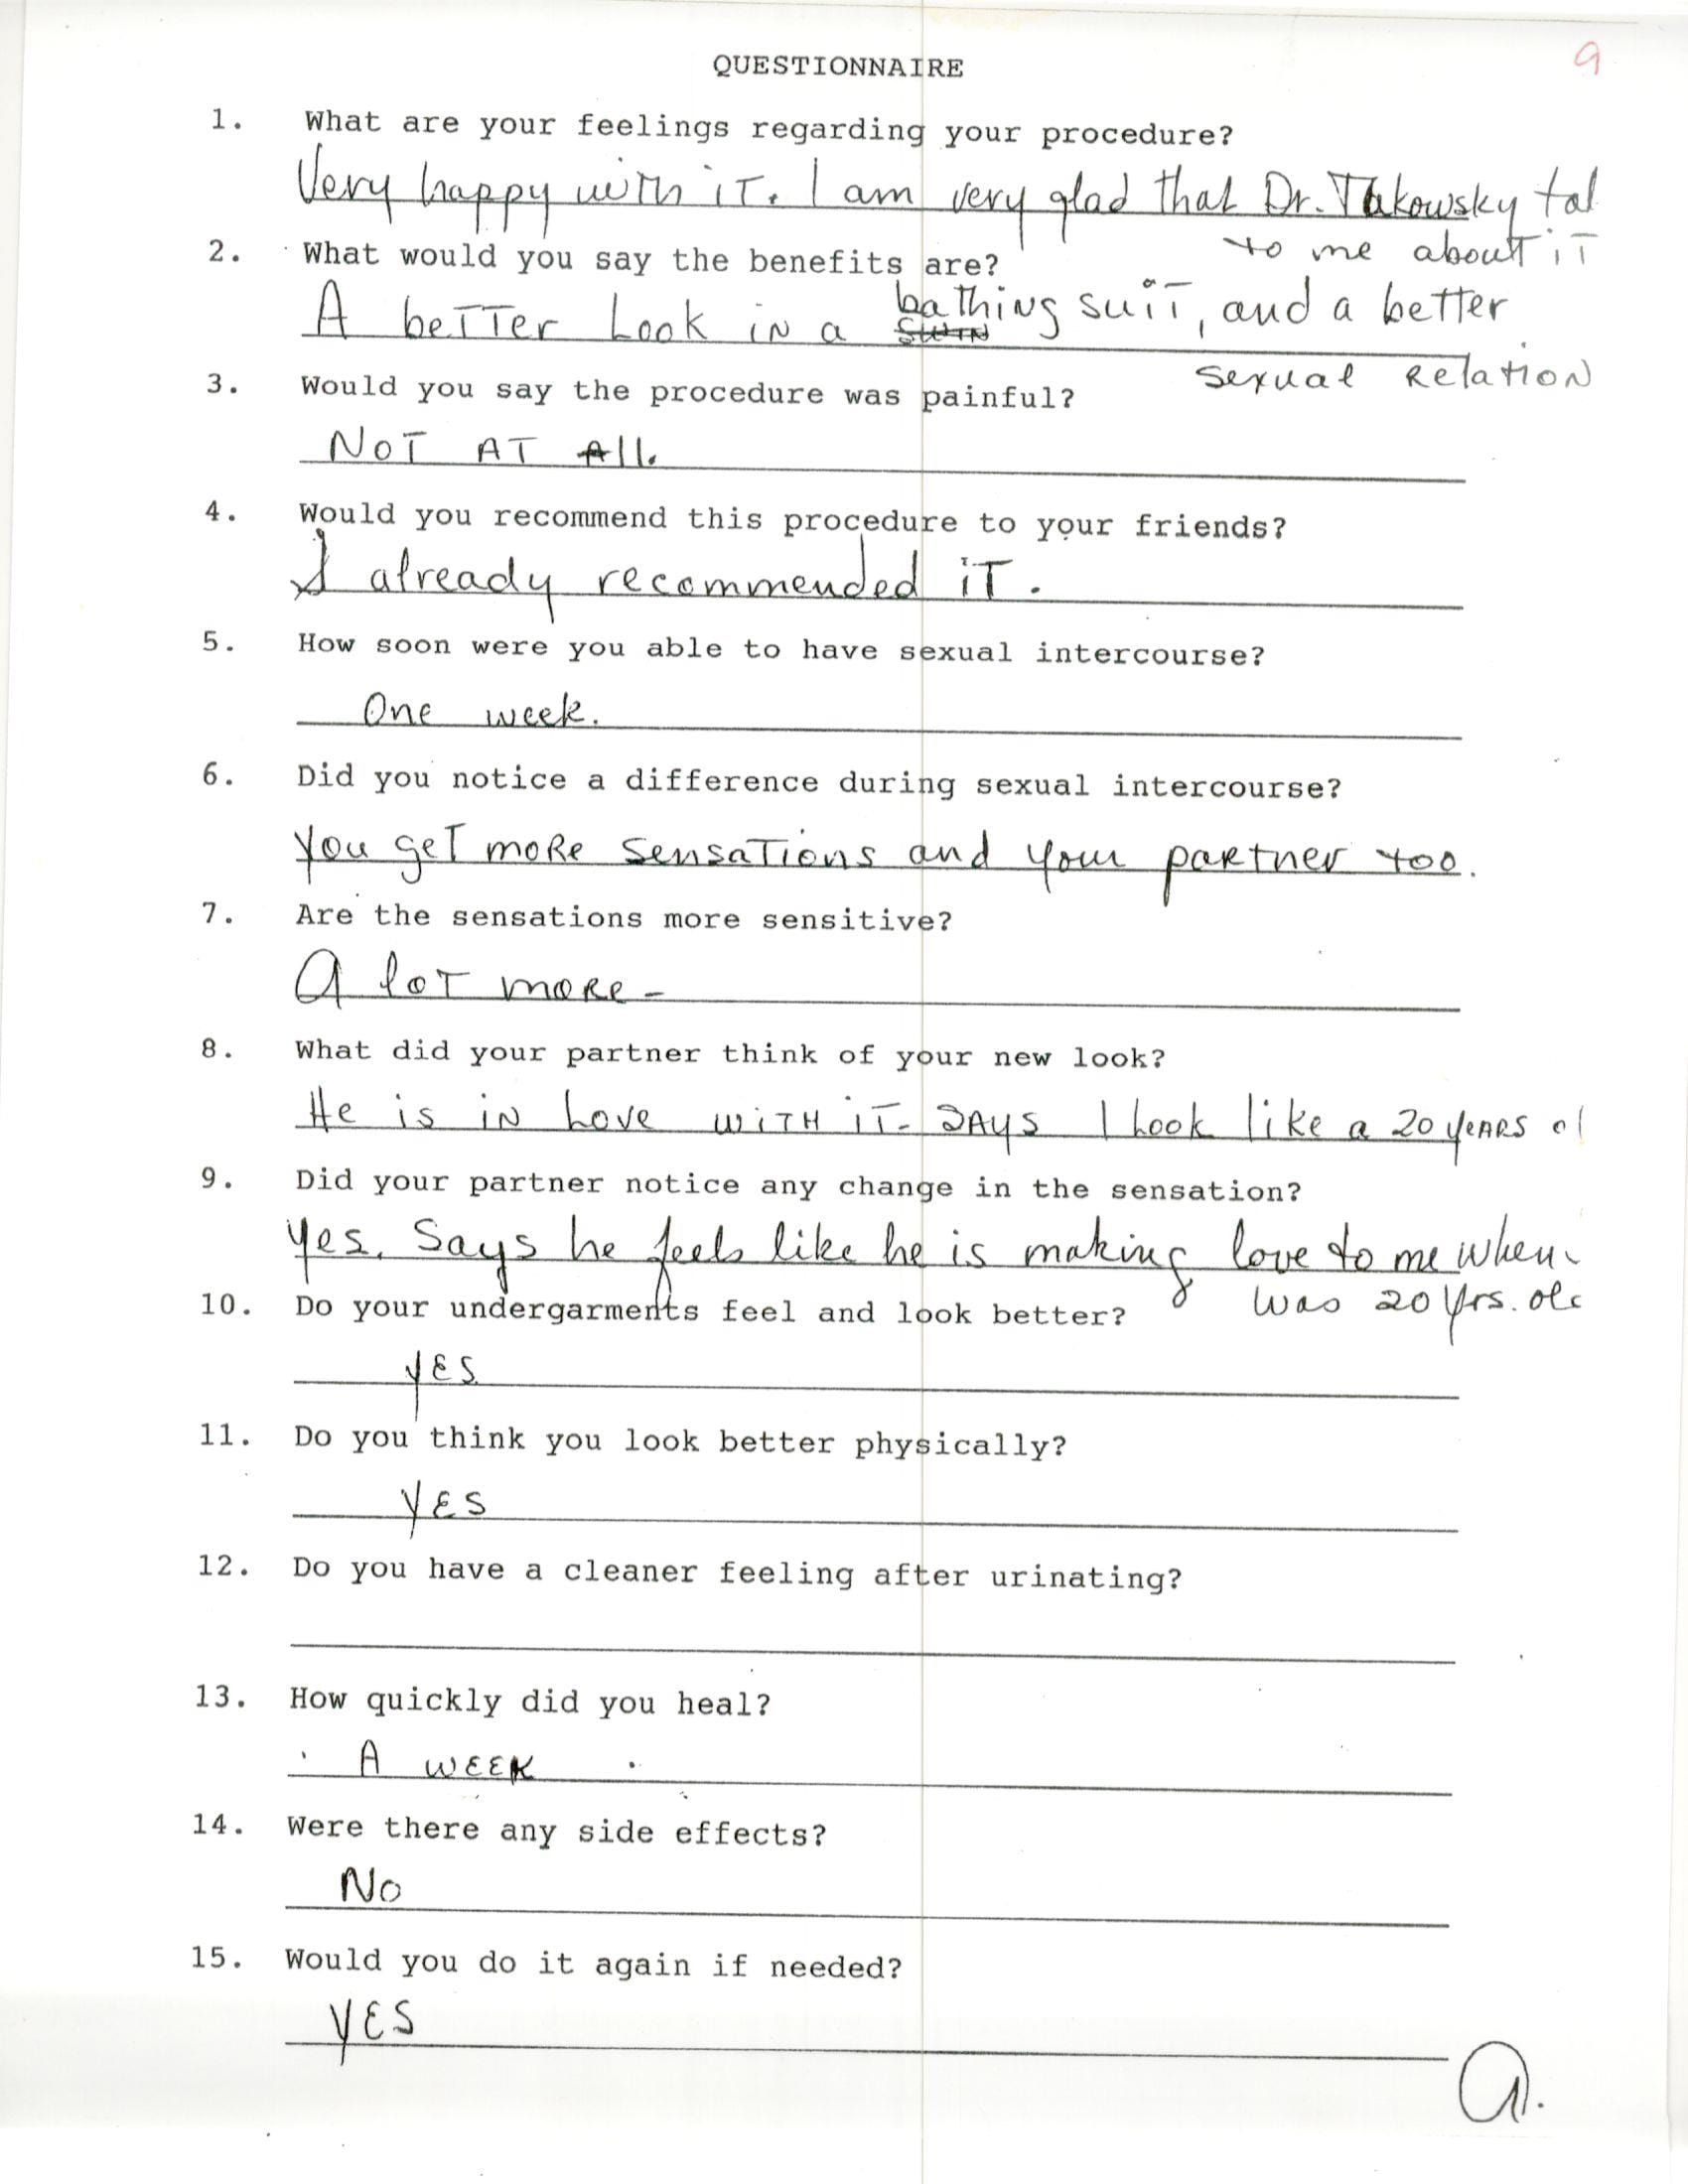 QUESTIONNAIRE
9
1. What are your feelings regarding your procedure?
Very happy with iT. I am very glad that Dr. Takowsky tal
to me about iT
2. What would you say the benefits are?
A beTTer Look iN a bathiNg suiT, and a better
sexual RelatioN
3. Would you say the procedure was painful?
NoT AT All.
4. Would you recommend this procedure to your friends?
I already recommended iT.
5. How soon were you able to have sexual intercourse?
One week.
6. Did you notice a difference during sexual intercourse?
You geT moRe sensaTions and your paRtner too.
7. Are the sensations more sensitive?
A loT moRe -
8. What did your partner think of your new look?
He is iN Love WiTH iT - SAYS I Look like a 20 yeARS ol
9. Did your partner notice any change in the sensation?
Yes. Says he feels like he is making love to me when
was 20 Yrs. old
10. Do your undergarments feel and look better?
YES
11. Do you think you look better physically?
YES
12. Do you have a cleaner feeling after urinating?
13. How quickly did you heal?
A WEEK
14. Were there any side effects?
No
15. Would you do it again if needed?
YES
A.